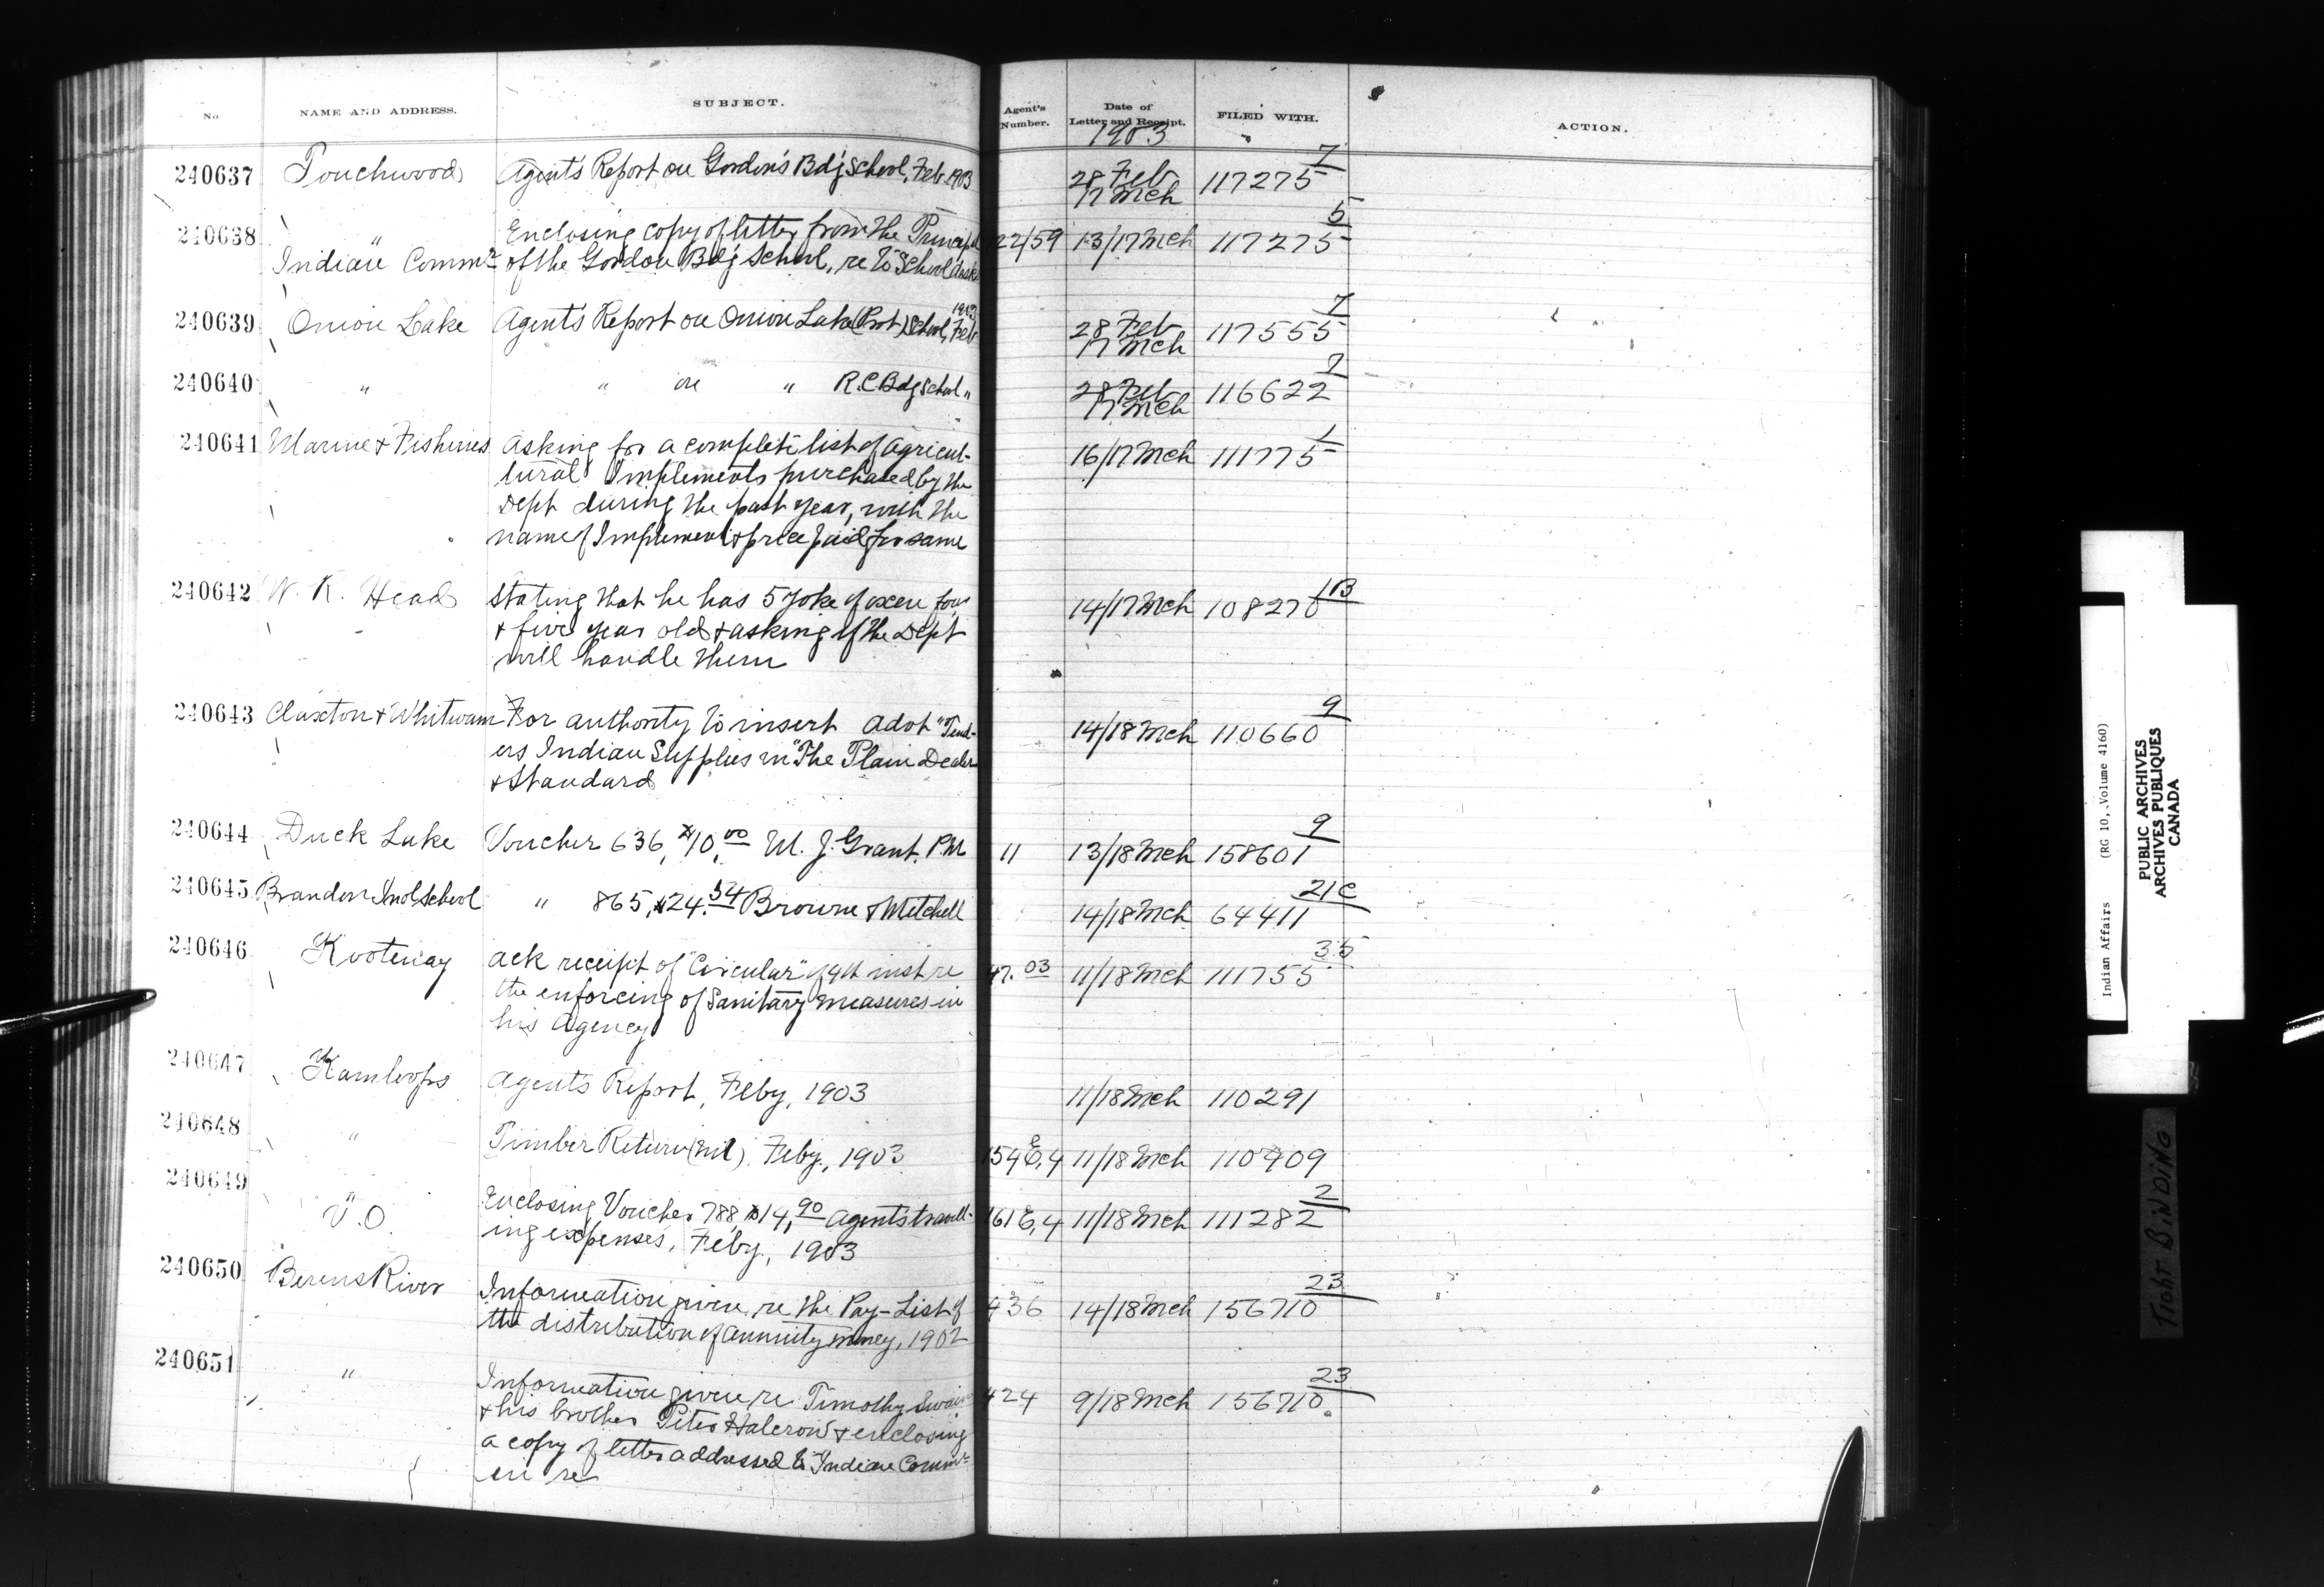 No. NAME AND ADDRESS. SUBJECT. Agent's Number. Date of Letter and Receipt. FILED WITH. ACTION.
1903
240637 Touchwood Agent's Report on Gordon's Bdg School, Feb. 1903 28 Feb 17 Mch 117275 7
240638 " Enclosing copy of letter from the Principal 122/59 13/17 Mch 117275 5
Indian Commr of the Gordon Bdg School, re to School desks
240639 Onion Lake Agent's Report on Onion Lake (Prot) School, Feb 1903 28 Feb 17 Mch 117555 7
240640 " " on " R.C. Bdg School " 28 Feb 17 Mch 116622 7
240641 Marine & Fisheries Asking for a complete list of Agricul- 16/17 Mch 111775 1
tural Implements purchased by the
Dept during the past year, with the
name of Implement & price paid for same
240642 W. R. Head Stating that he has 5 yoke of oxen four 14/17 Mch 108270 1B
& five year old & asking if the Dept
will handle them
240643 Claxton & Whitwam For authority to insert Advt "Tend- 14/18 Mch 110660 9
ers Indian Supplies in "The Plain Dealer
& Standard
240644 Duck Lake Voucher 636, $10.00 M. J. Grant, P.M. 11 13/18 Mch 158601 9
240645 Brandon Indl School " 865, $24.54 Browne & Mitchell 14/18 Mch 64411 21C
240646 Kootenay Ack receipt of "Circular" of 4th inst re 47.03 11/18 Mch 111755 35
the enforcing of Sanitary measures in
his Agency
240647 Kamloops Agent's Report, Feby, 1903 11/18 Mch 110291
240648 " Timber Return (Nil). Feby., 1903 154 E,4 11/18 Mch 110909
240649 " Enclosing Voucher 788, $14.90 Agent's travell- 161 E,4 11/18 Mch 111282 2
V.O. ing expenses, Feby., 1903
240650 Berens River Information given re the Pay-List of 436 14/18 Mch 156710 23
the distribution of annuity money, 1902
240651 " Information given re Timothy Swain 424 9/18 Mch 156710 23
& his brother Peter Halcrow & enclosing
a copy of letter addressed to Indian Commr
in re
Indian Affairs (RG 10, Volume 4160)
PUBLIC ARCHIVES
ARCHIVES PUBLIQUES
CANADA
TIGHT BINDING